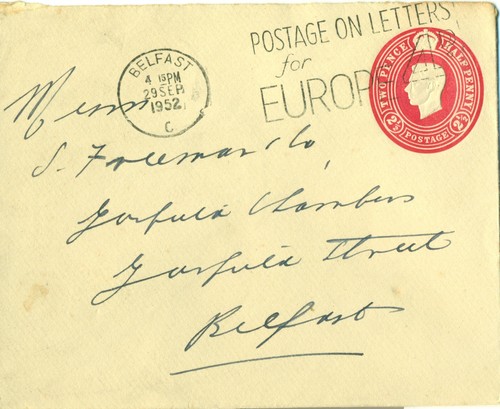 BELFAST
4 15 PM
29 SEP
1952
C
POSTAGE ON LETTERS
for
EUROPE
TWO PENCE HALF PENNY
2½ POSTAGE 2½
Messrs
S. Freeman & Co,
Garfield Chambers
Garfield Street
Belfast